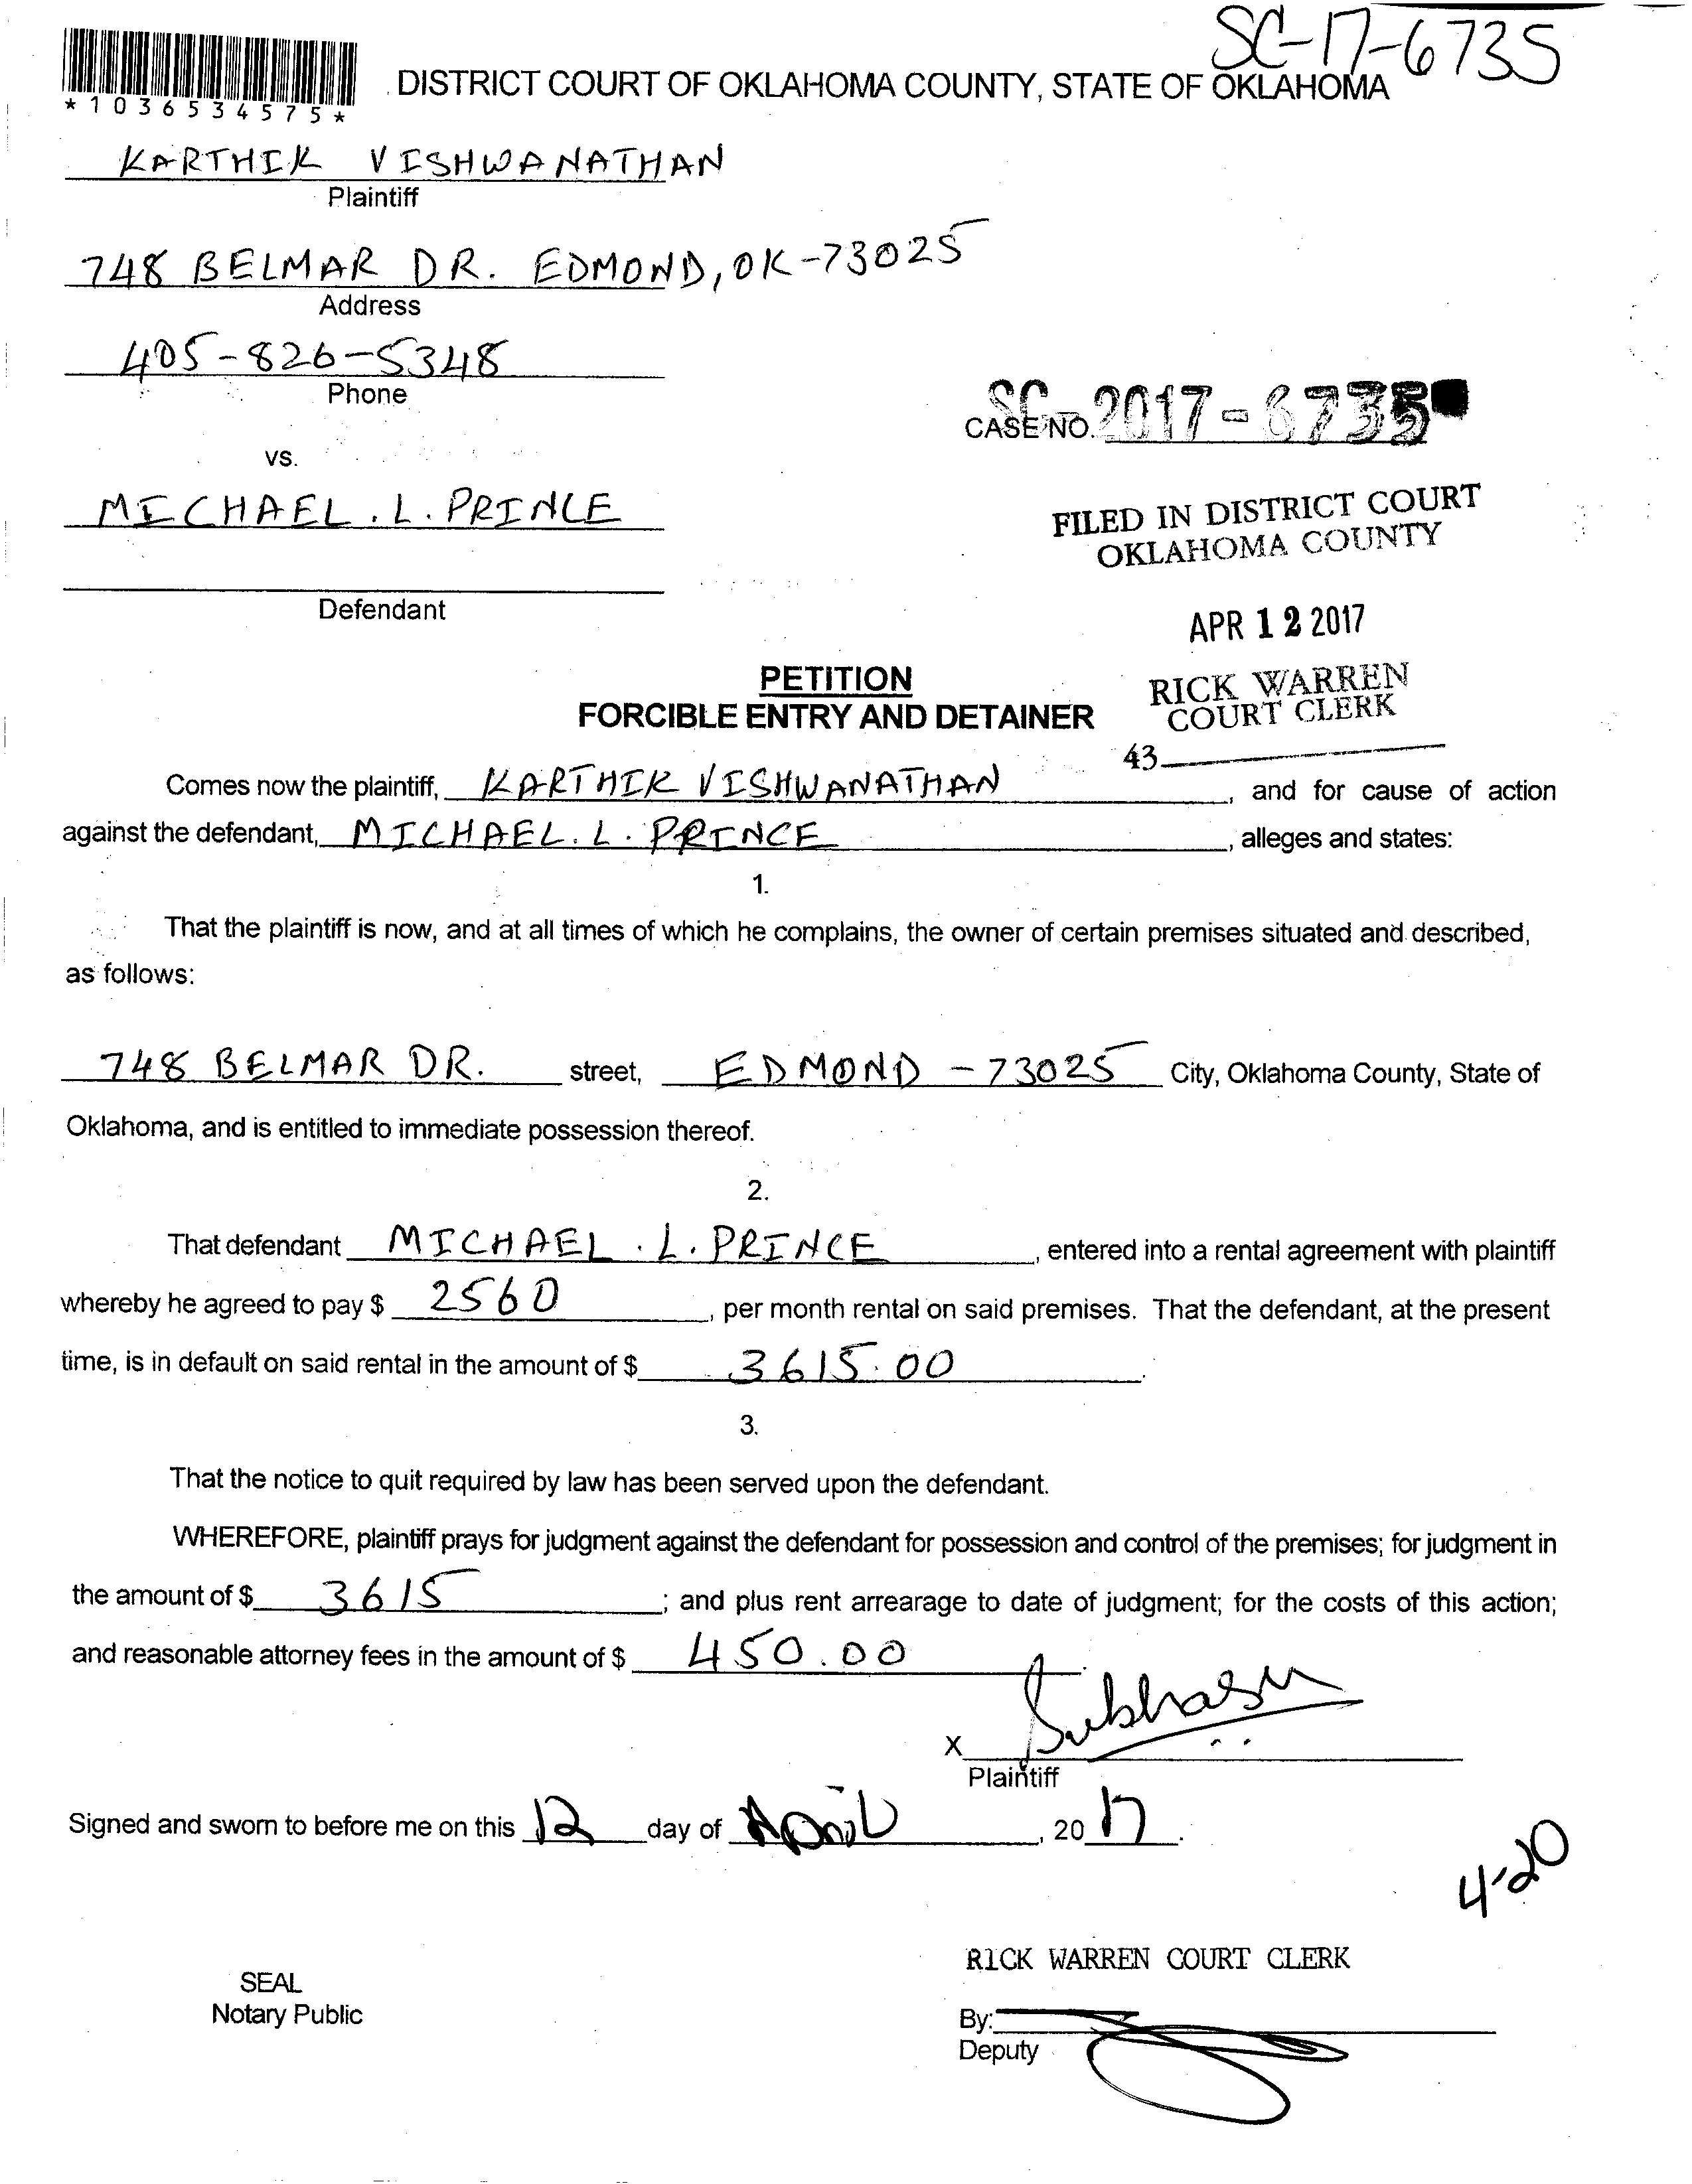 SC-17-6735
*1036534575*
DISTRICT COURT OF OKLAHOMA COUNTY, STATE OF OKLAHOMA
KARTHIK VISHWANATHAN
Plaintiff
748 BELMAR DR. EDMOND, OK-73025
Address
405-826-5348
Phone
CASE NO. SC-2017-6735
vs.
MICHAEL.L.PRINCE
FILED IN DISTRICT COURT
OKLAHOMA COUNTY
Defendant
APR 12 2017
PETITION
RICK WARREN
FORCIBLE ENTRY AND DETAINER
COURT CLERK
43
Comes now the plaintiff, KARTHIK VISHWANATHAN, and for cause of action
against the defendant, MICHAEL.L.PRINCE, alleges and states:
1.
That the plaintiff is now, and at all times of which he complains, the owner of certain premises situated and described,
as follows:
748 BELMAR DR. street, EDMOND - 73025 City, Oklahoma County, State of
Oklahoma, and is entitled to immediate possession thereof.
2.
That defendant MICHAEL.L.PRINCE, entered into a rental agreement with plaintiff
whereby he agreed to pay $ 2560, per month rental on said premises. That the defendant, at the present
time, is in default on said rental in the amount of $ 3615.00.
3.
That the notice to quit required by law has been served upon the defendant.
WHEREFORE, plaintiff prays for judgment against the defendant for possession and control of the premises; for judgment in
the amount of $ 3615; and plus rent arrearage to date of judgment; for the costs of this action;
and reasonable attorney fees in the amount of $ 450.00
X
Plaintiff
Signed and sworn to before me on this 12 day of April, 2017.
4-20
RICK WARREN COURT CLERK
SEAL
Notary Public
By:
Deputy